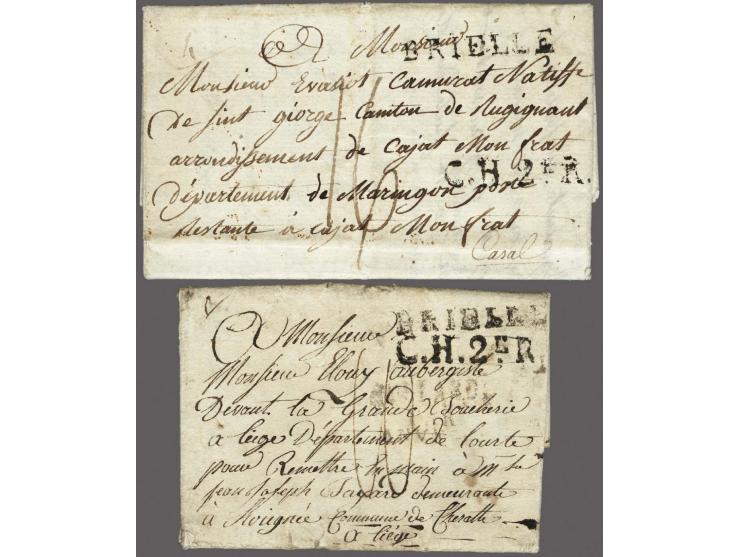 A Monsieur
BRIELLE
Monsieur Evasiot Camurat Natiffe
De sint giorge Canton de Rugignant
arrondissement de Cajat Mon frat
C.H. 2E R.
Département de Maringon poste
16
restante à cajat Monfrat
Casal
A Monsieur
BRIELLE
C.H. 2E R.
Monsieur Elouy aubergiste
Devant la Grande Boucherie
a liége Département de lourte
pour Remettre En main à Mr
jean joseph demeurante
à Commune de Cheratte
a liége